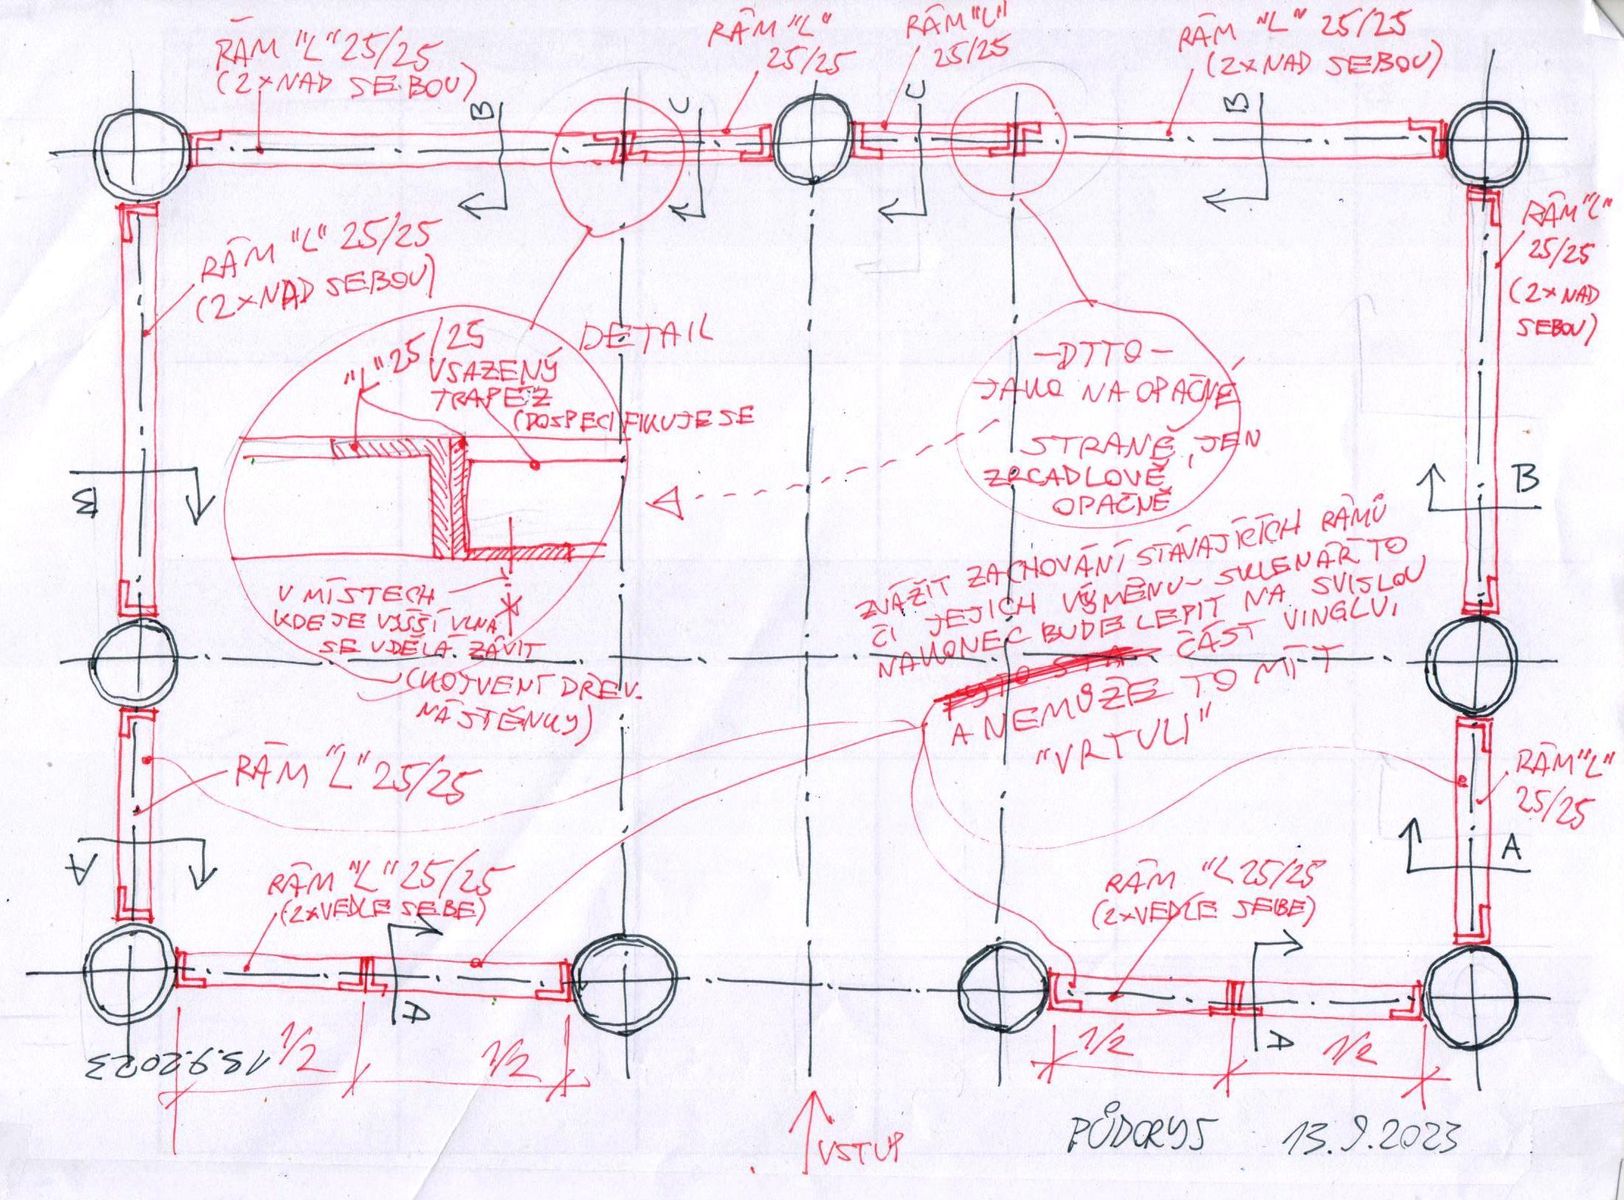 RÁM "L" 25/25
(2x NAD SEBOU)
RÁM "L"
25/25
RÁM "L"
25/25
RÁM "L" 25/25
(2x NAD SEBOU)
B
C
C
B
RÁM "L" 25/25
(2x NAD SEBOU)
RÁM "L"
25/25
(2x NAD
SEBOU)
DETAIL
"L" 25/25
VSAZENÝ
TRAPÉZ
(DOSPECIFIKUJE SE
-DTTO-
JAKO NA OPAČNÉ
STRANĚ, JEN
ZRCADLOVĚ
OPAČNĚ
B
B
V MÍSTECH
KDE JE VYŠŠÍ VLNA
SE UDĚLÁ ZÁVIT
(KOTVENÍ DŘEV.
NÁSTĚNKY)
ZVÁŽIT ZACHOVÁNÍ STÁVAJÍCÍCH RÁMŮ
ČI JEJICH VÝMĚNU - SKLENÁŘ TO
NAKONEC BUDE LEPIT NA SVISLOU
ČÁST VINGLU,
A NEMŮŽE TO MÍT
"VRTULI"
RÁM "L" 25/25
RÁM "L"
25/25
A
A
RÁM "L" 25/25
(2x VEDLE SEBE)
RÁM "L" 25/25
(2x VEDLE SEBE)
A
A
13.9.2023
1/2
1/2
1/2
1/2
VSTUP
PŮDORYS
13.9.2023